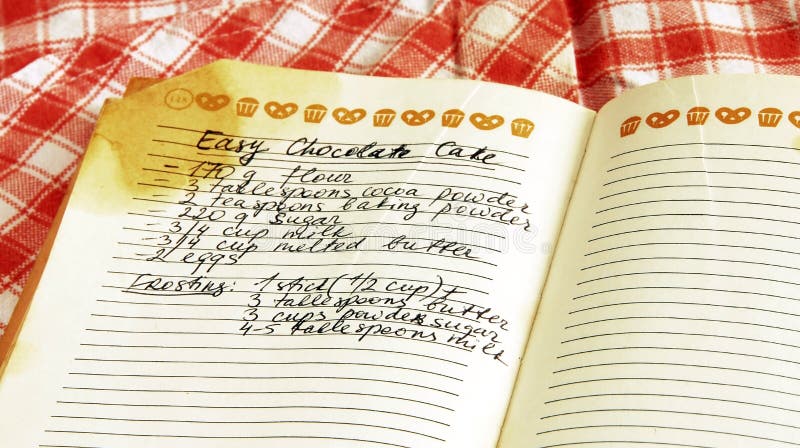 128
Easy Chocolate Cake
- 170 g flour
- 3 tablespoons cocoa powder
- 2 teaspoons baking powder
- 220 g sugar
- 3/4 cup milk
- 3/4 cup melted butter
- 2 eggs
Frosting: -1 stick (1/2 cup) +
3 tablespoons butter
3 cups powder sugar
4-5 tablespoons milk
dreamstime